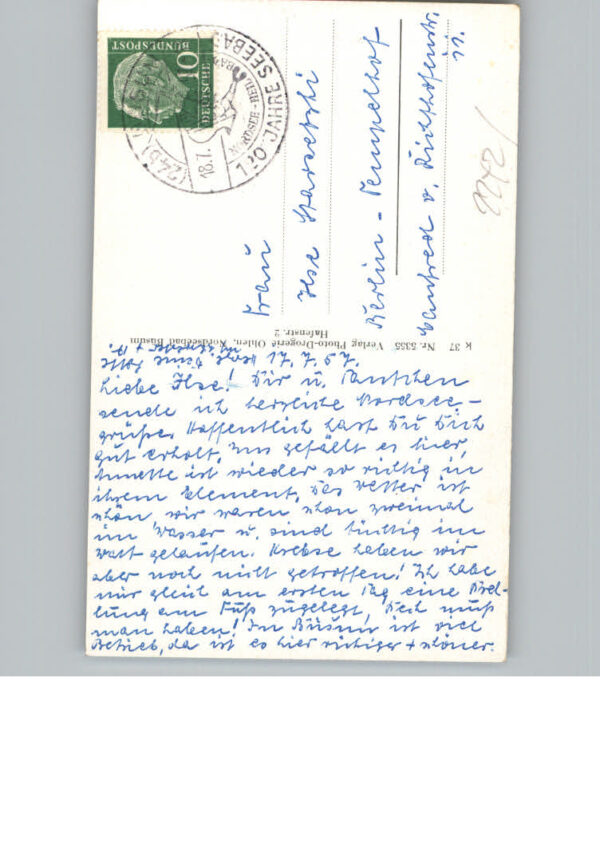 10
BUNDESPOST
DEUTSCHE
120 JAHRE SEEBAD
NORDSEE-HEIL
(24b)
18.7.
Frau
Ilse
Berlin - Tempelhof
Manfred v. Richthofenstr.
k 37 Nr. 5355 Verlag Photo-Drogerie Ohlen, Nordseebad Büsum
Hafenstr. 2
17.7.57.
Liebe Ilse! Dir u. Tantchen
sende ich herzliche Nordsee-
grüße. Hoffentlich hast Du Dich
gut erholt, uns gefällt es hier,
Annette ist wieder so richtig in
ihrem Element, das Wetter ist
schön wir waren schon zweimal
im Wasser u. sind tüchtig im
Watt gelaufen. Krebse haben wir
aber noch nicht getroffen! Ich habe
mir gleich am ersten Tag eine
am Fuß zugelegt, Pech muß
man haben! In Büsum ist viel
Betrieb, da ist es hier ruhiger + schöner.